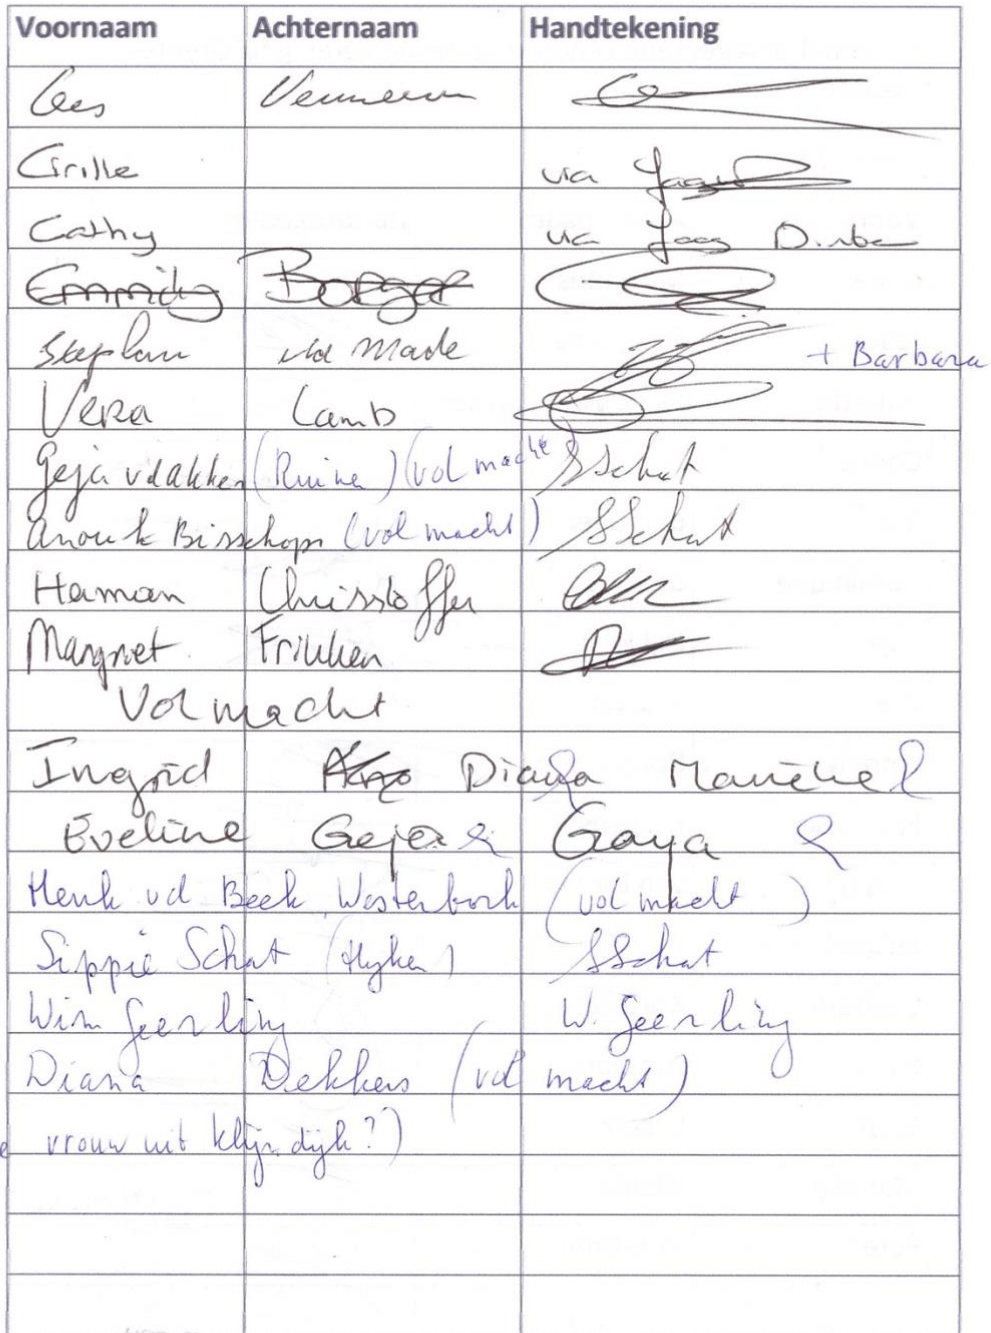 Voornaam Achternaam Handtekening
Cees Vermeeren
Cirille via Jaap
Cathy via Jaap
Emmily Borger
Stephan vd Made + Barbara
Vera Lamb
Geja vdAkker (Ruinen) (volmacht) SSchat
Anouk Bisschops (volmacht) SSchat
Herman Christoffer
Margriet Frikken
Volmacht
Ingrid Diana Mariëlle
Eveline Geja Gaya
Henk vd Beek Westerbork (volmacht)
Sippie Schat (Hyken) SSchat
Wim Geerling W. Geerling
Diana Dekkers (volmacht)
vrouw uit klijndijk?)